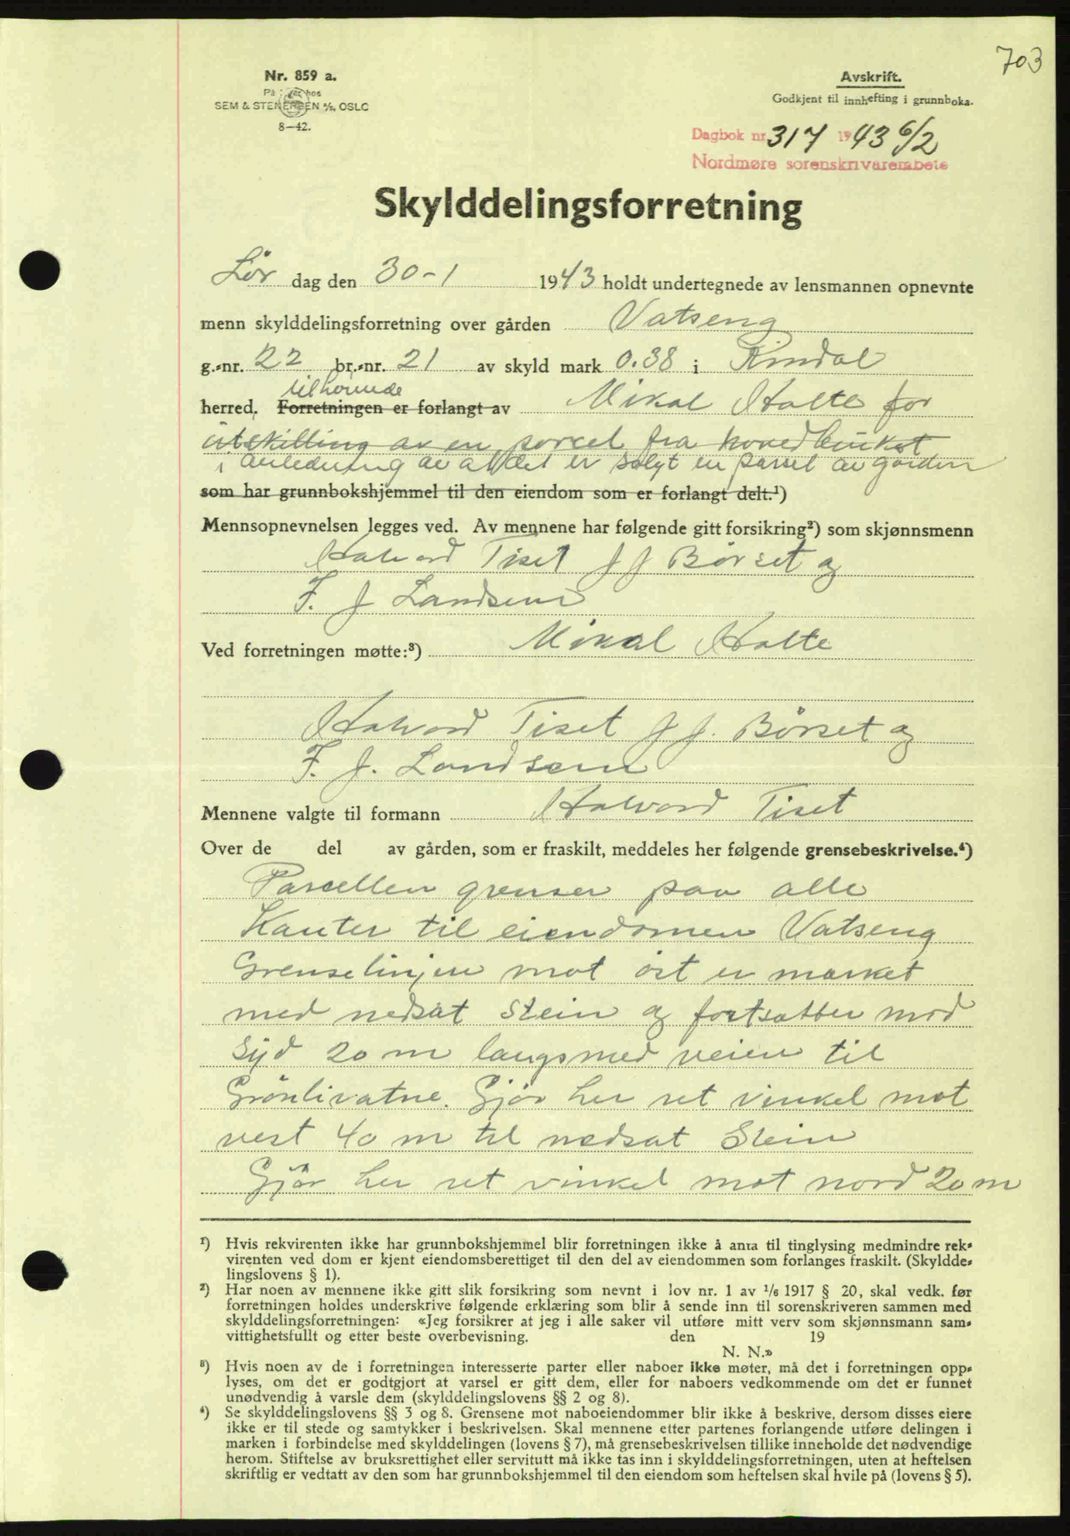 703
Nr. 859 a.
På lager hos
SEM & STENERSEN A/S, OSLO
8—42.
Avskrift.
Godkjent til innhefting i grunnboka.
Dagbok nr 317 1943 6/2
Nordmøre sorenskrivarembete
Skylddelingsforretning
Lør dag den 30-1 1943 holdt undertegnede av lensmannen opnevnte
menn skylddelingsforretning over gården Vatseng
g.-nr. 22 br.-nr. 21 av skyld mark 0.38 i Rindal
tilhørende
herred. Forretningen er forlangt av Mikal Holte for
utskilling av en parcel fra hovedbruket
i anledning av at det er solgt en parsel av gården
som har grunnbokshjemmel til den eiendom som er forlangt delt.¹)
Mennsopnevnelsen legges ved. Av mennene har følgende gitt forsikring²) som skjønnsmenn
Halvord Tiset J J Børset og
F. J Landsem
Ved forretningen møtte:³) Mikal Holte
Halvord Tiset J J. Børset og
F. J. Landsem
Mennene valgte til formann Halvord Tiset
Over de del av gården, som er fraskilt, meddeles her følgende grensebeskrivelse.⁴)
Parcellen grenser paa alle
Kanter til eiendomen Vatseng
Grenselinjen mot øst er merket
med nedsat stein og fortsætter mod
Syd 20 m langsmed veien til
Grønlivatne. Gjør her ret vinkel mot
vest 40 m til nedsat Stein
Gjør her ret vinkel mot nord 20 m
¹) Hvis rekvirenten ikke har grunnbokshjemmel blir forretningen ikke å anta til tinglysing medmindre rek-
virenten ved dom er kjent eiendomsberettiget til den del av eiendommen som forlanges fraskilt. (Skyldde-
lingslovens § 1).
²) Har noen av mennene ikke gitt slik forsikring som nevnt i lov nr. 1 av 1/6 1917 § 20, skal vedk. før
forretningen holdes underskrive følgende erklæring som blir å sende inn til sorenskriveren sammen med
skylddelingsforretningen: «Jeg forsikrer at jeg i alle saker vil utføre mitt verv som skjønnsmann sam-
vittighetsfullt og etter beste overbevisning. den 19
N. N.»
³) Hvis noen av de i forretningen interesserte parter eller naboer ikke møter, må det i forretningen opp-
lyses, om det er godtgjort at varsel er gitt dem, eller for naboers vedkommende om det er funnet
unødvendig å varsle dem (skylddelingslovens §§ 2 og 8).
⁴) Se skylddelingslovens §§ 3 og 8. Grensene mot naboeiendommer blir ikke å beskrive, dersom disses eiere
ikke er til stede og samtykker i beskrivelsen. Skal mennene etter partenes forlangende utføre delingen i
marken i forbindelse med skylddelingen (lovens § 7), må grensebeskrivelsen tillike inneholde det nødvendige
herom. Stiftelse av bruksrettighet eller servitutt må ikke tas inn i skylddelingsforretningen, uten at heftelsen
skriftlig er vedtatt av den som har grunnbokshjemmel til den eiendom som heftelsen skal hvile på (lovens § 5).